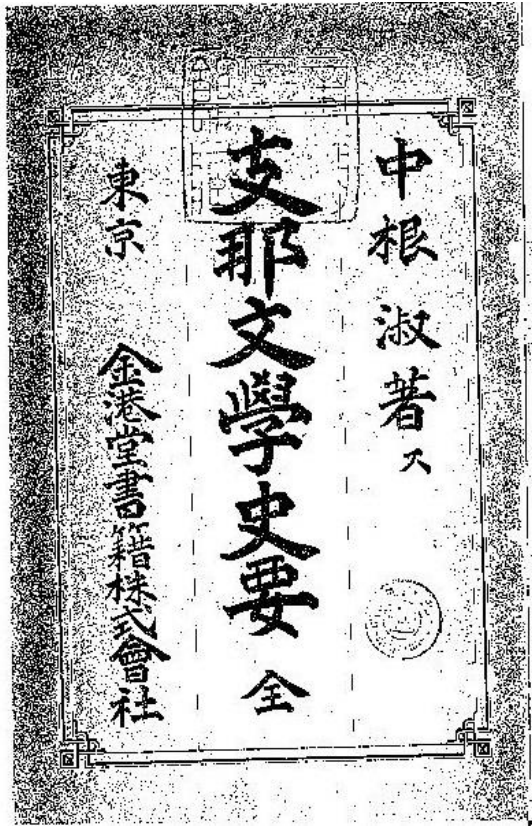 中根淑著ス
支那文學史要 全
東京 金港堂書籍株式會社